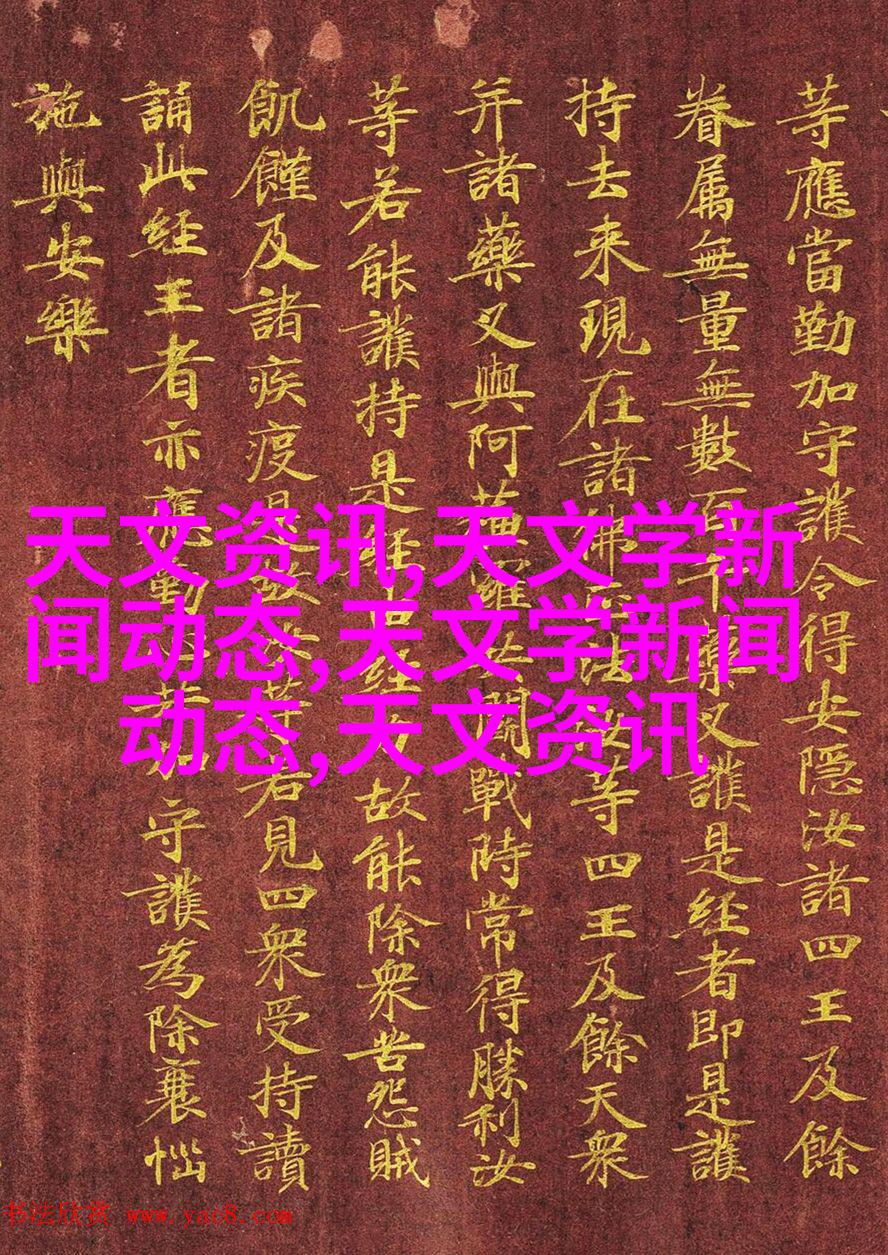 等應當勤加守護令得安隱汝諸四王及餘
眷属無量無數百千藥叉護是經者即是護
持去来現在諸佛正法汝等四王及餘天衆
并諸藥叉與阿蘓羅共鬪戰時常得勝利汝
等若能護持是經由經力故能除衆苦怨賊
飢饉及諸疾疫是故汝等若見四衆受持讀
誦此經王者亦應勤加守護為除襄惱
施與安樂
天文资讯,天文学新
闻动态,天文学新闻
动态,天文资讯
书法欣赏 www.yac8.com